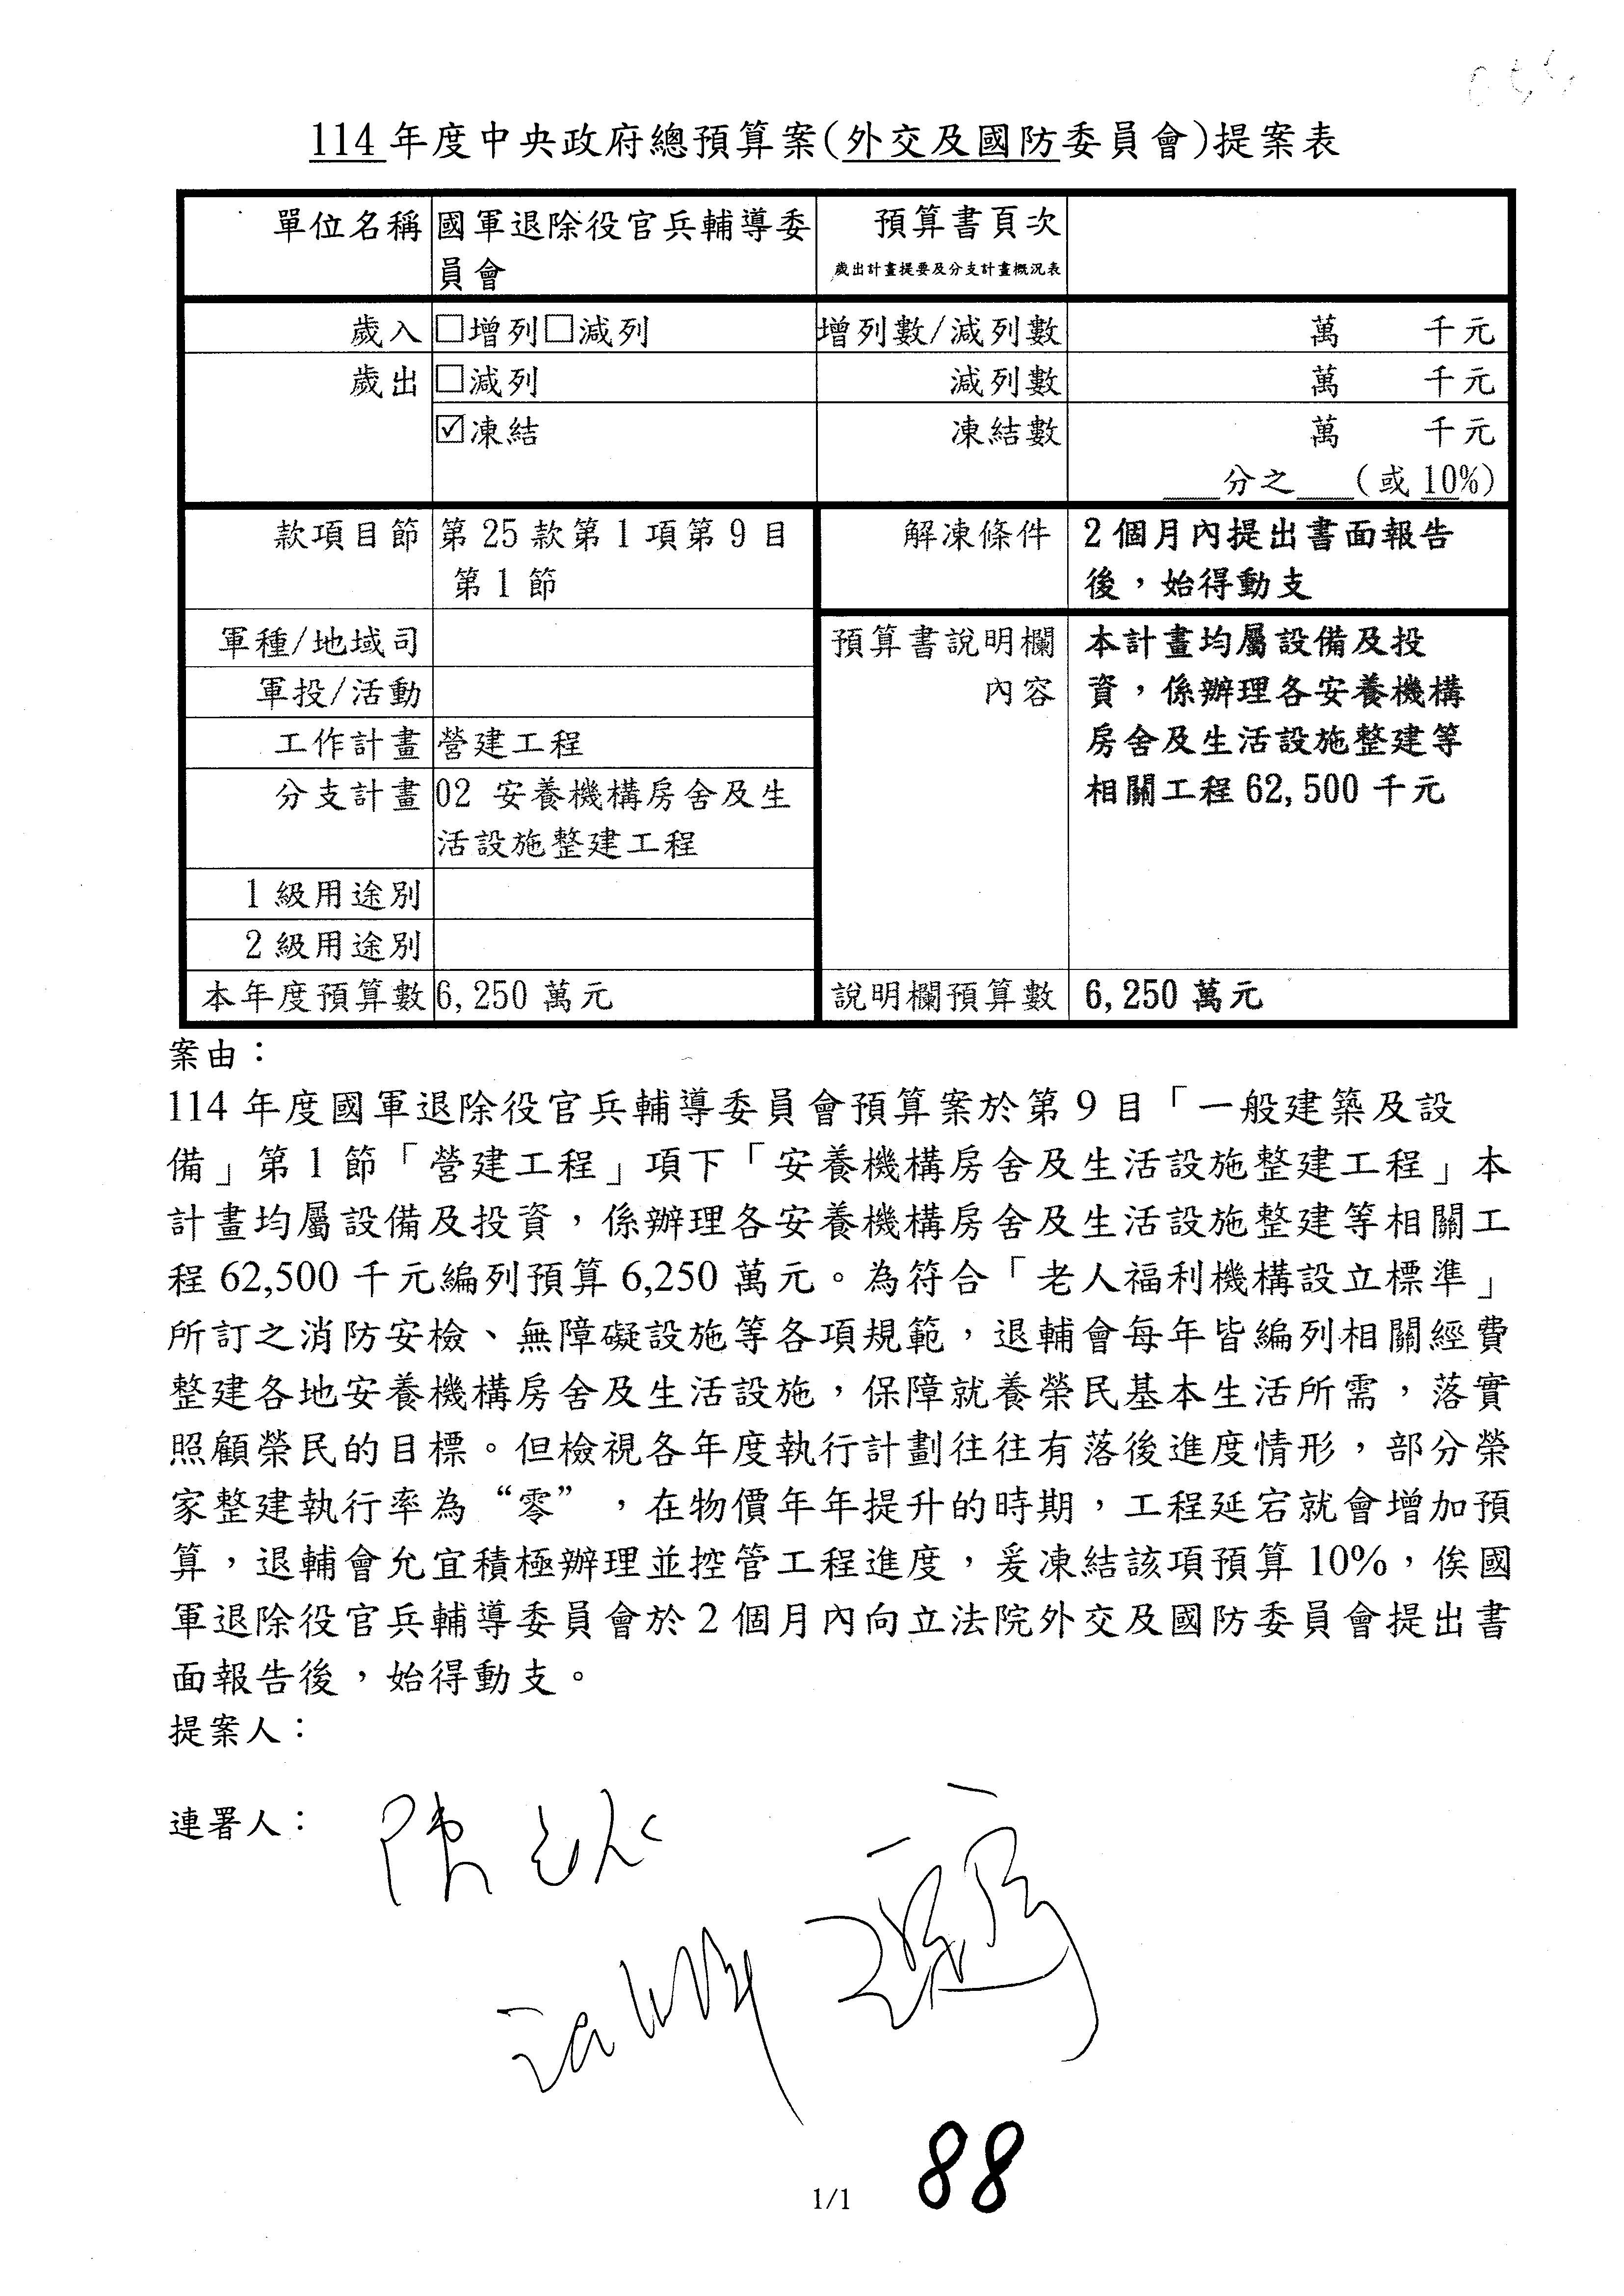 114 年度中央政府總預算案(外交及國防委員會)提案表
單位名稱 國軍退除役官兵輔導委員會 預算書頁次
歲出計畫提要及分支計畫概況表
歲入 □增列□減列 增列數/減列數 萬 千元
歲出 □減列 減列數 萬 千元
☑凍結 凍結數 萬 千元
___分之___(或 10%)
款項目節 第 25 款第 1 項第 9 目
第 1 節
解凍條件 2 個月內提出書面報告
後，始得動支
軍種/地域司
軍投/活動
工作計畫 營建工程
分支計畫 02 安養機構房舍及生
活設施整建工程
1 級用途別
2 級用途別
預算書說明欄
內容
本計畫均屬設備及投
資，係辦理各安養機構
房舍及生活設施整建等
相關工程 62,500 千元
本年度預算數 6,250 萬元 說明欄預算數 6,250 萬元
案由：
114 年度國軍退除役官兵輔導委員會預算案於第 9 目「一般建築及設
備」第 1 節「營建工程」項下「安養機構房舍及生活設施整建工程」本
計畫均屬設備及投資，係辦理各安養機構房舍及生活設施整建等相關工
程 62,500 千元編列預算 6,250 萬元。為符合「老人福利機構設立標準」
所訂之消防安檢、無障礙設施等各項規範，退輔會每年皆編列相關經費
整建各地安養機構房舍及生活設施，保障就養榮民基本生活所需，落實
照顧榮民的目標。但檢視各年度執行計劃往往有落後進度情形，部分榮
家整建執行率為“零”，在物價年年提升的時期，工程延宕就會增加預
算，退輔會允宜積極辦理並控管工程進度，爰凍結該項預算 10%，俟國
軍退除役官兵輔導委員會於 2 個月內向立法院外交及國防委員會提出書
面報告後，始得動支。
提案人：
連署人：
88
1/1